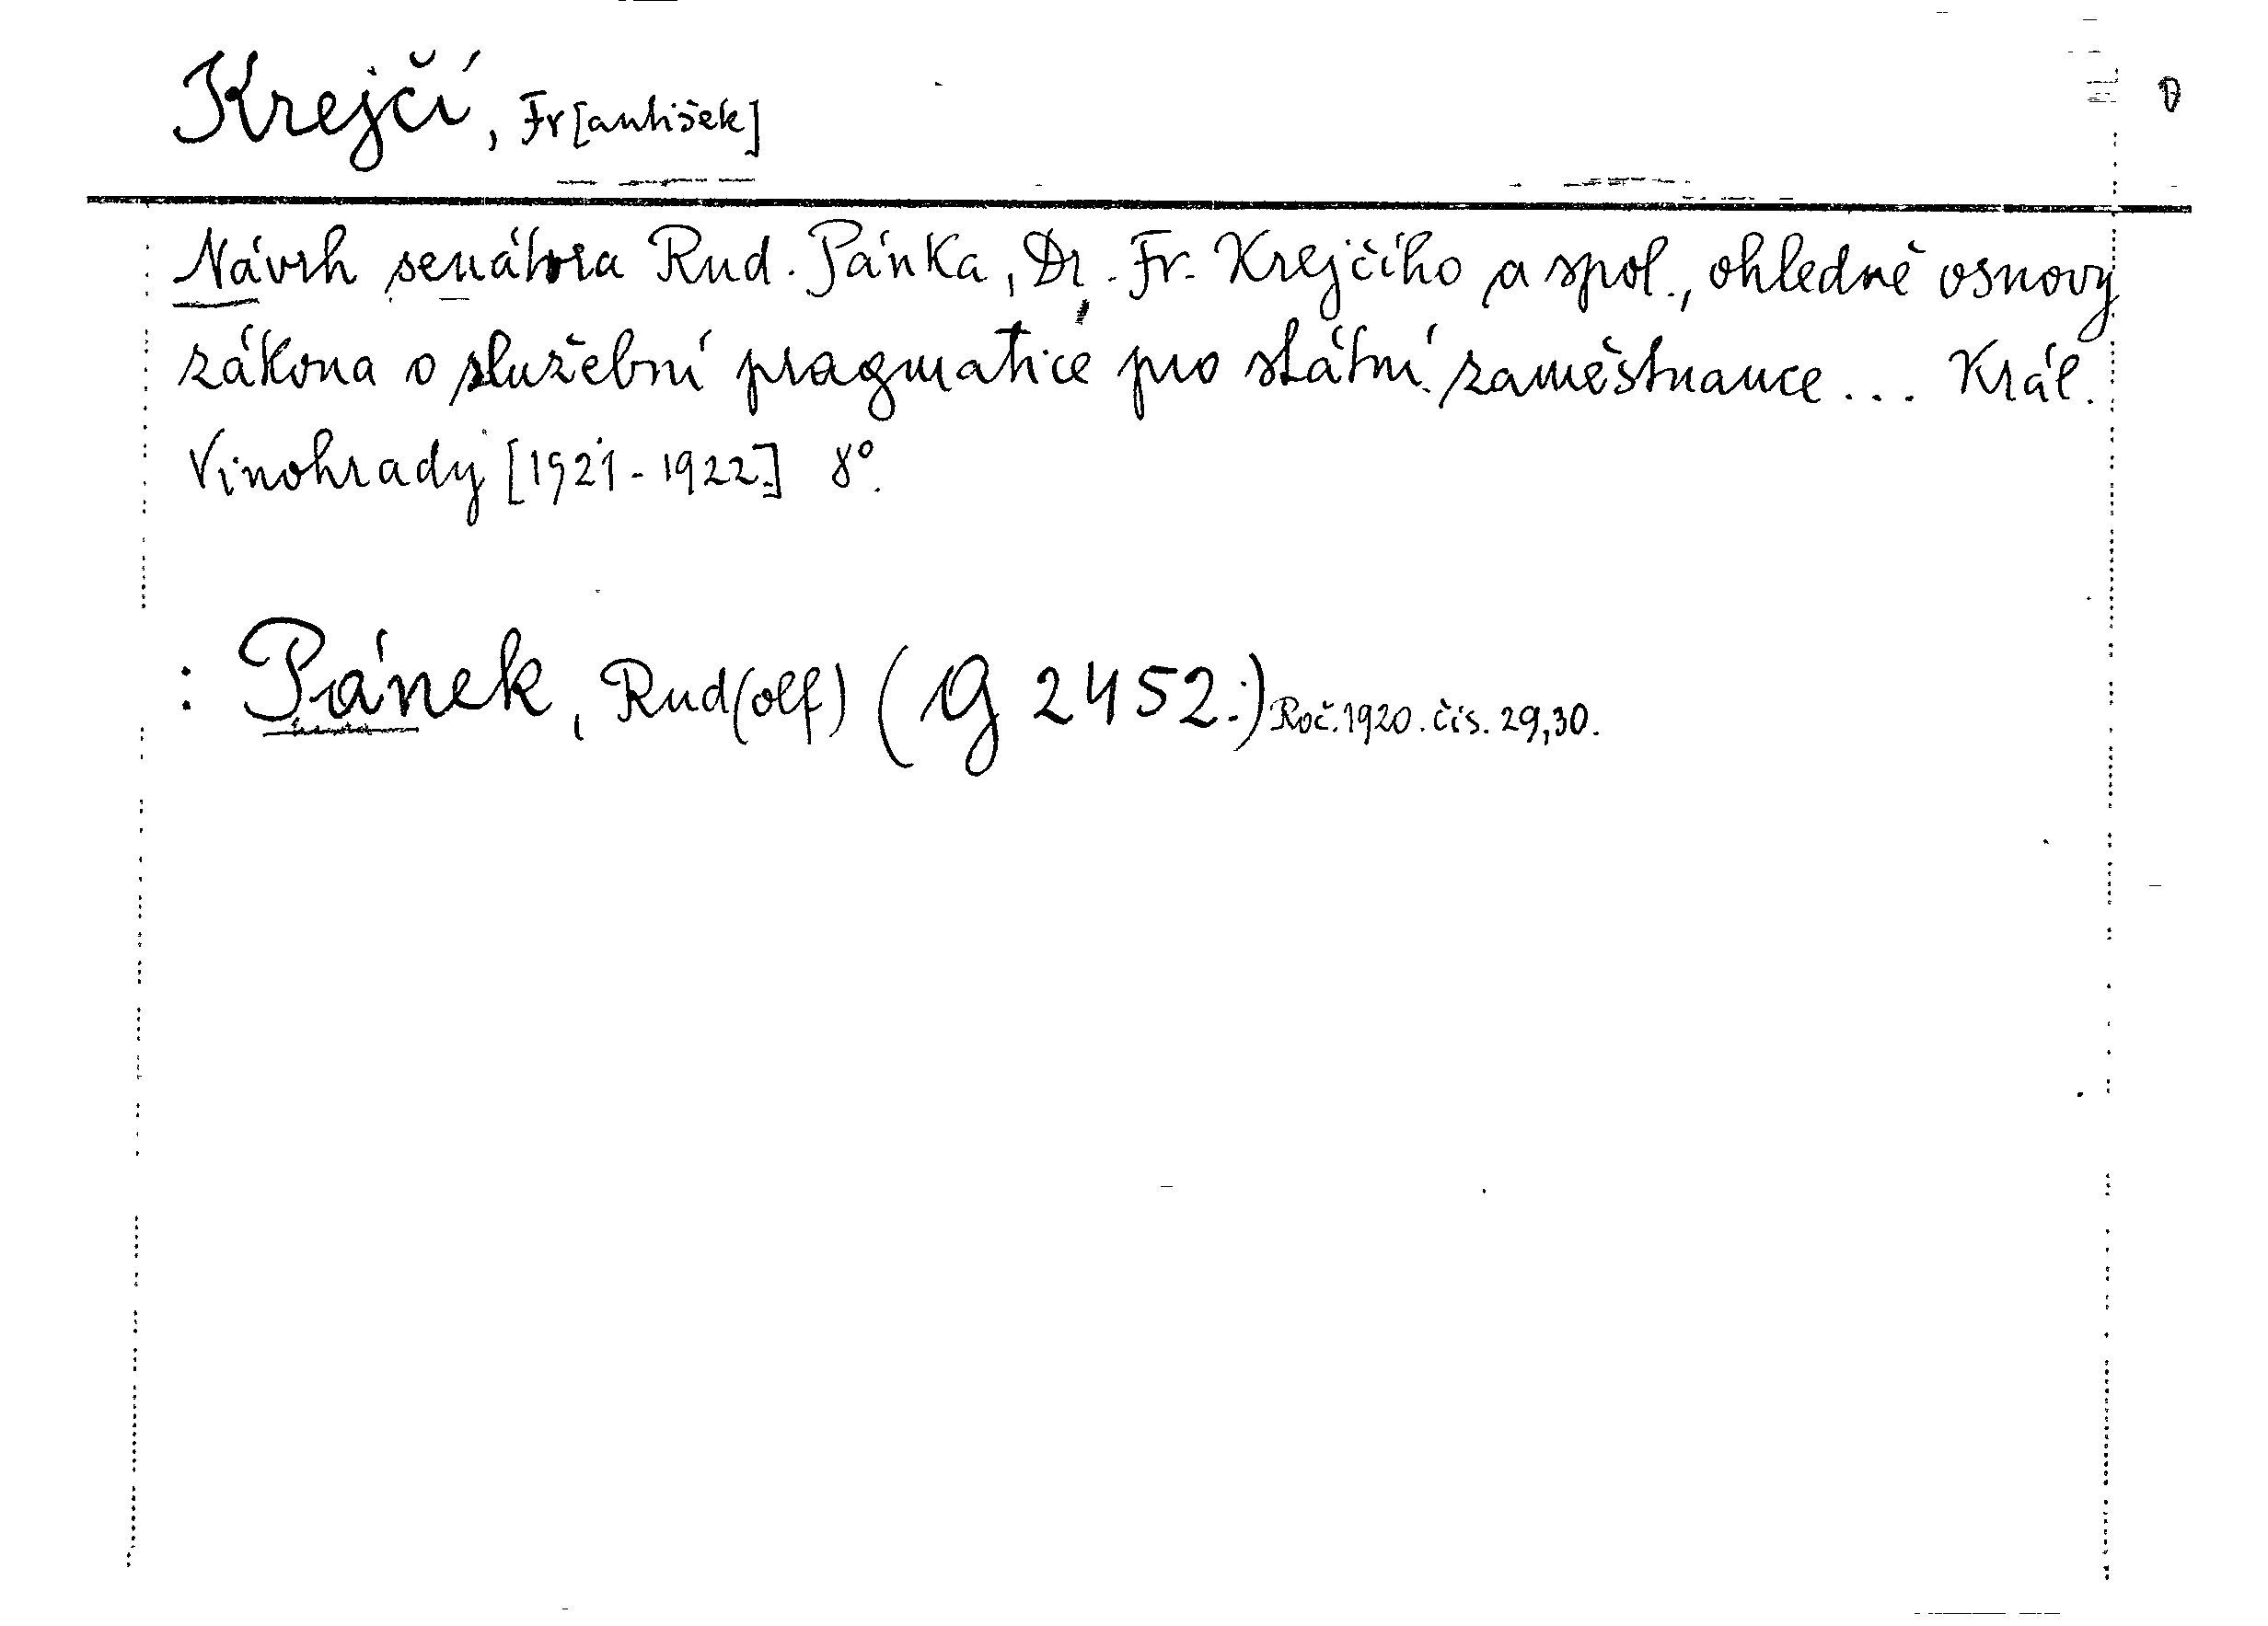 Krejčí, Fr[antišek]
Návrh senátora Rud. Pánka, Dr. Fr. Krejčího a spol., ohledně osnovy
zákona o služební pragmatice pro státní zaměstnance... Král.
Vinohrady [1921-1922] 8°.
: Pánek, Rud(olf) (G 2452.) Roč. 1920. čís. 29,30.